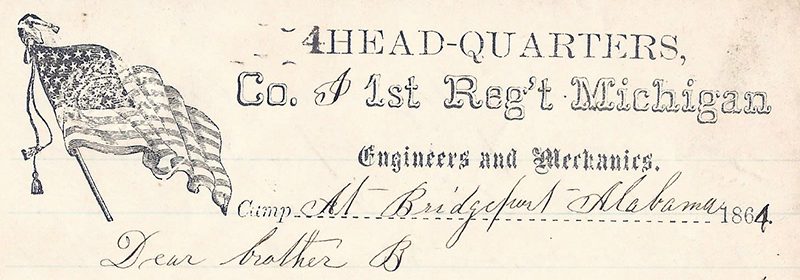 4 HEAD-QUARTERS,
Co. I 1st Reg't Michigan
Engineers and Mechanics.
Camp At Bridgeport Alabama 1864
Dear brother B